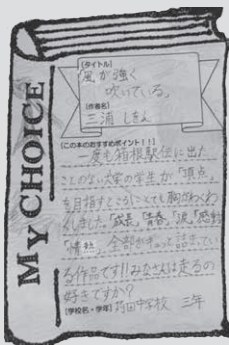 MY CHOICE
[タイトル]
風が強く
吹いている。
[作者名]
三浦 しをん
[この本のおすすめポイント!!]
一度も箱根駅伝に出た
ことのない大学の学生が「頂点」
を目指すところにとても胸がわくわ
くしました。「成長」「青春」「涙」「感動」
「情熱」全部がギュッと詰まってい
る作品です!!みなさんは走るの
好きですか?
[学校名・学年] 中学校 三年